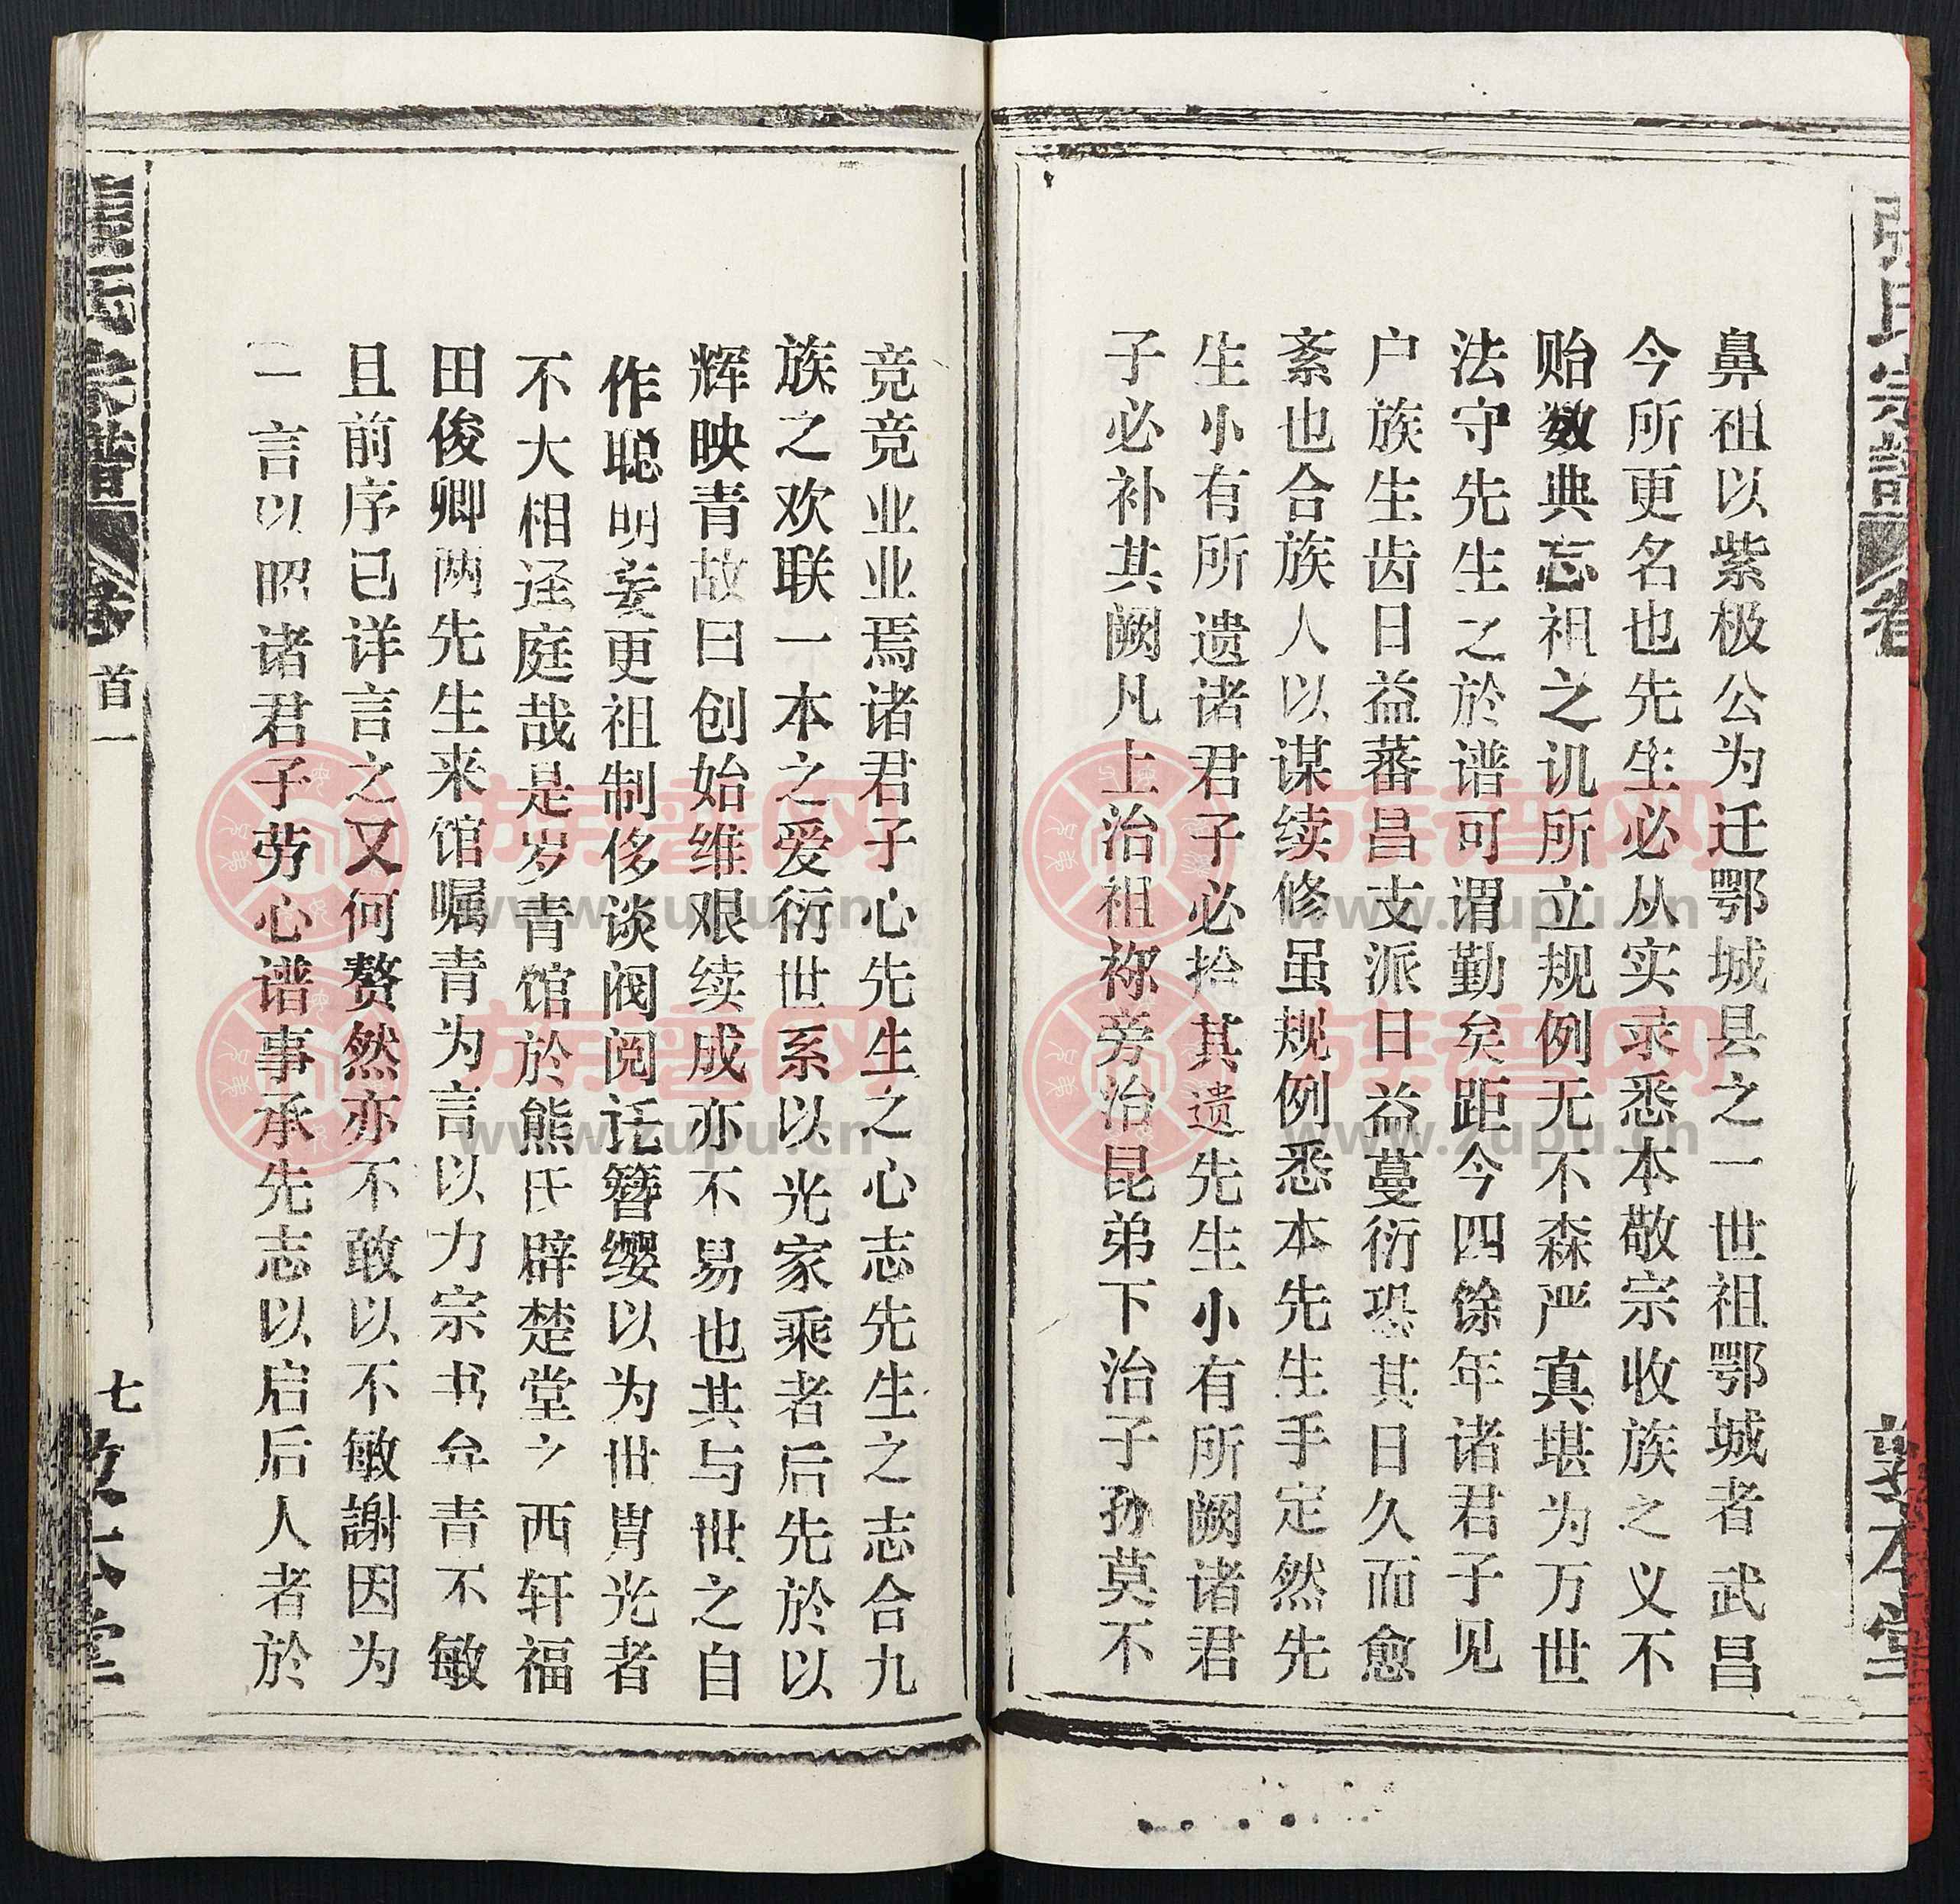 张氏宗谱 卷
鼻祖以紫极公为迁鄂城县之一世祖鄂城者武昌
今所更名也先生必从实录悉本敬宗收族之义不
贻数典忘祖之讥所立规例无不森严真堪为万世
法守先生之於谱可谓勤矣距今四馀年诸君子见
户族生齿日益蕃昌支派日益蔓衍恐其日久而愈
紊也合族人以谋续修虽规例悉本先生手定然先
生小有所遗诸君子必拾其遗先生小有所阙诸君
子必补其阙凡上治祖祢旁治昆弟下治子孙莫不
敦本堂
竞竞业业焉诸君子心先生之心志先生之志合九
族之欢联一本之爱衍世系以光家乘者后先於以
辉映青故曰创始维艰续成亦不易也其与世之自
作聪明妄更祖制侈谈阀阅讬簪缨以为世胄光者
不大相迳庭哉是岁青馆於熊氏辟楚堂之西轩福
田俊卿两先生来馆嘱青为言以力宗书弁青不敏
且前序已详言之又何赘然亦不敢以不敏謝因为
一言以昭诸君子劳心谱事承先志以启后人者於
张氏宗谱 卷 首一 七 敦本堂
族谱网
www.zupu.cn
族谱网
www.zupu.cn
族谱网
www.zupu.cn
族谱网
www.zupu.cn